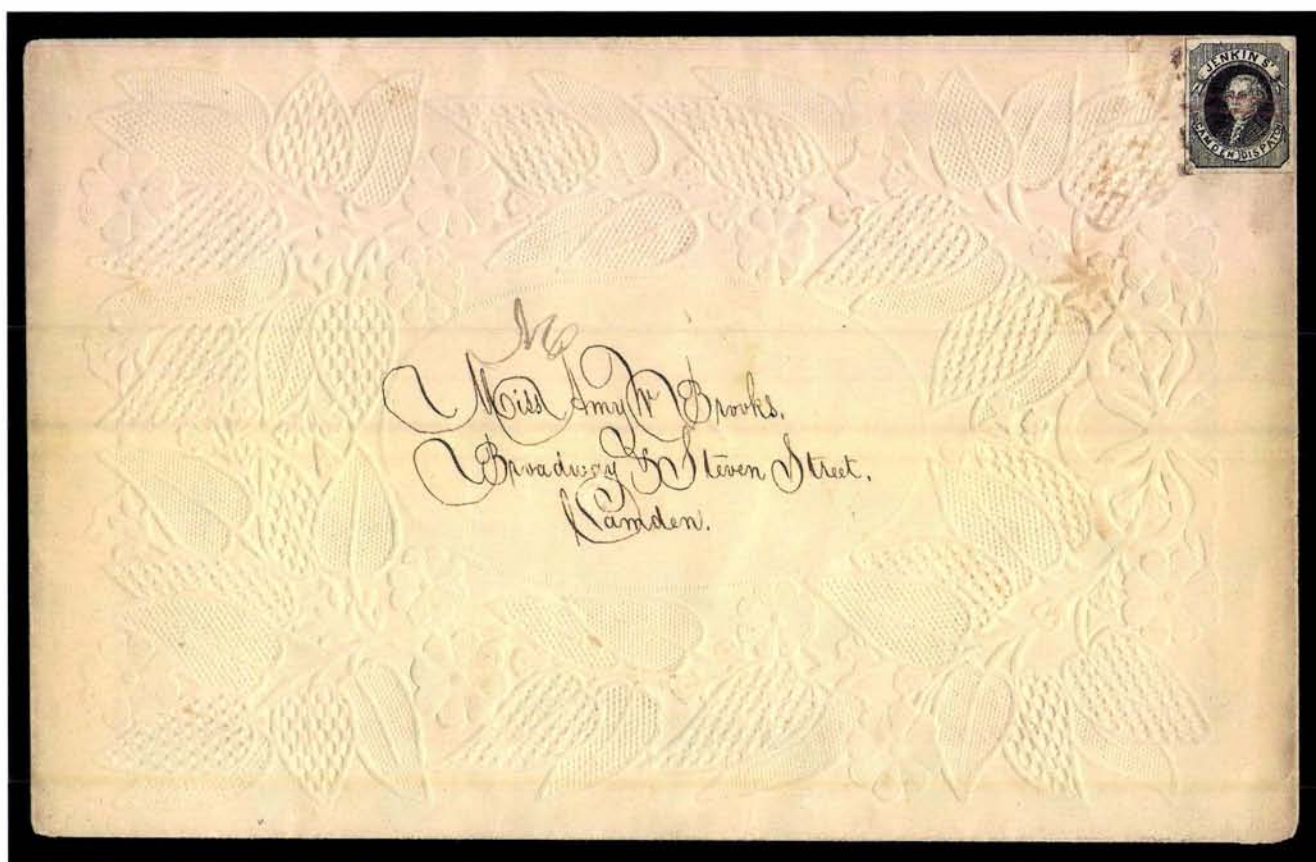 JENKINS'
CAMDEN DISPATCH
Miss Amy W Brooks.
Broadway & Steven Street,
Camden.